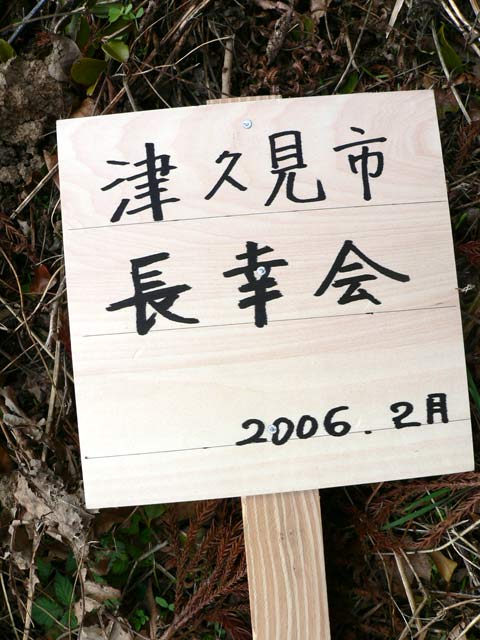 津久見市
長幸会
2006.2月